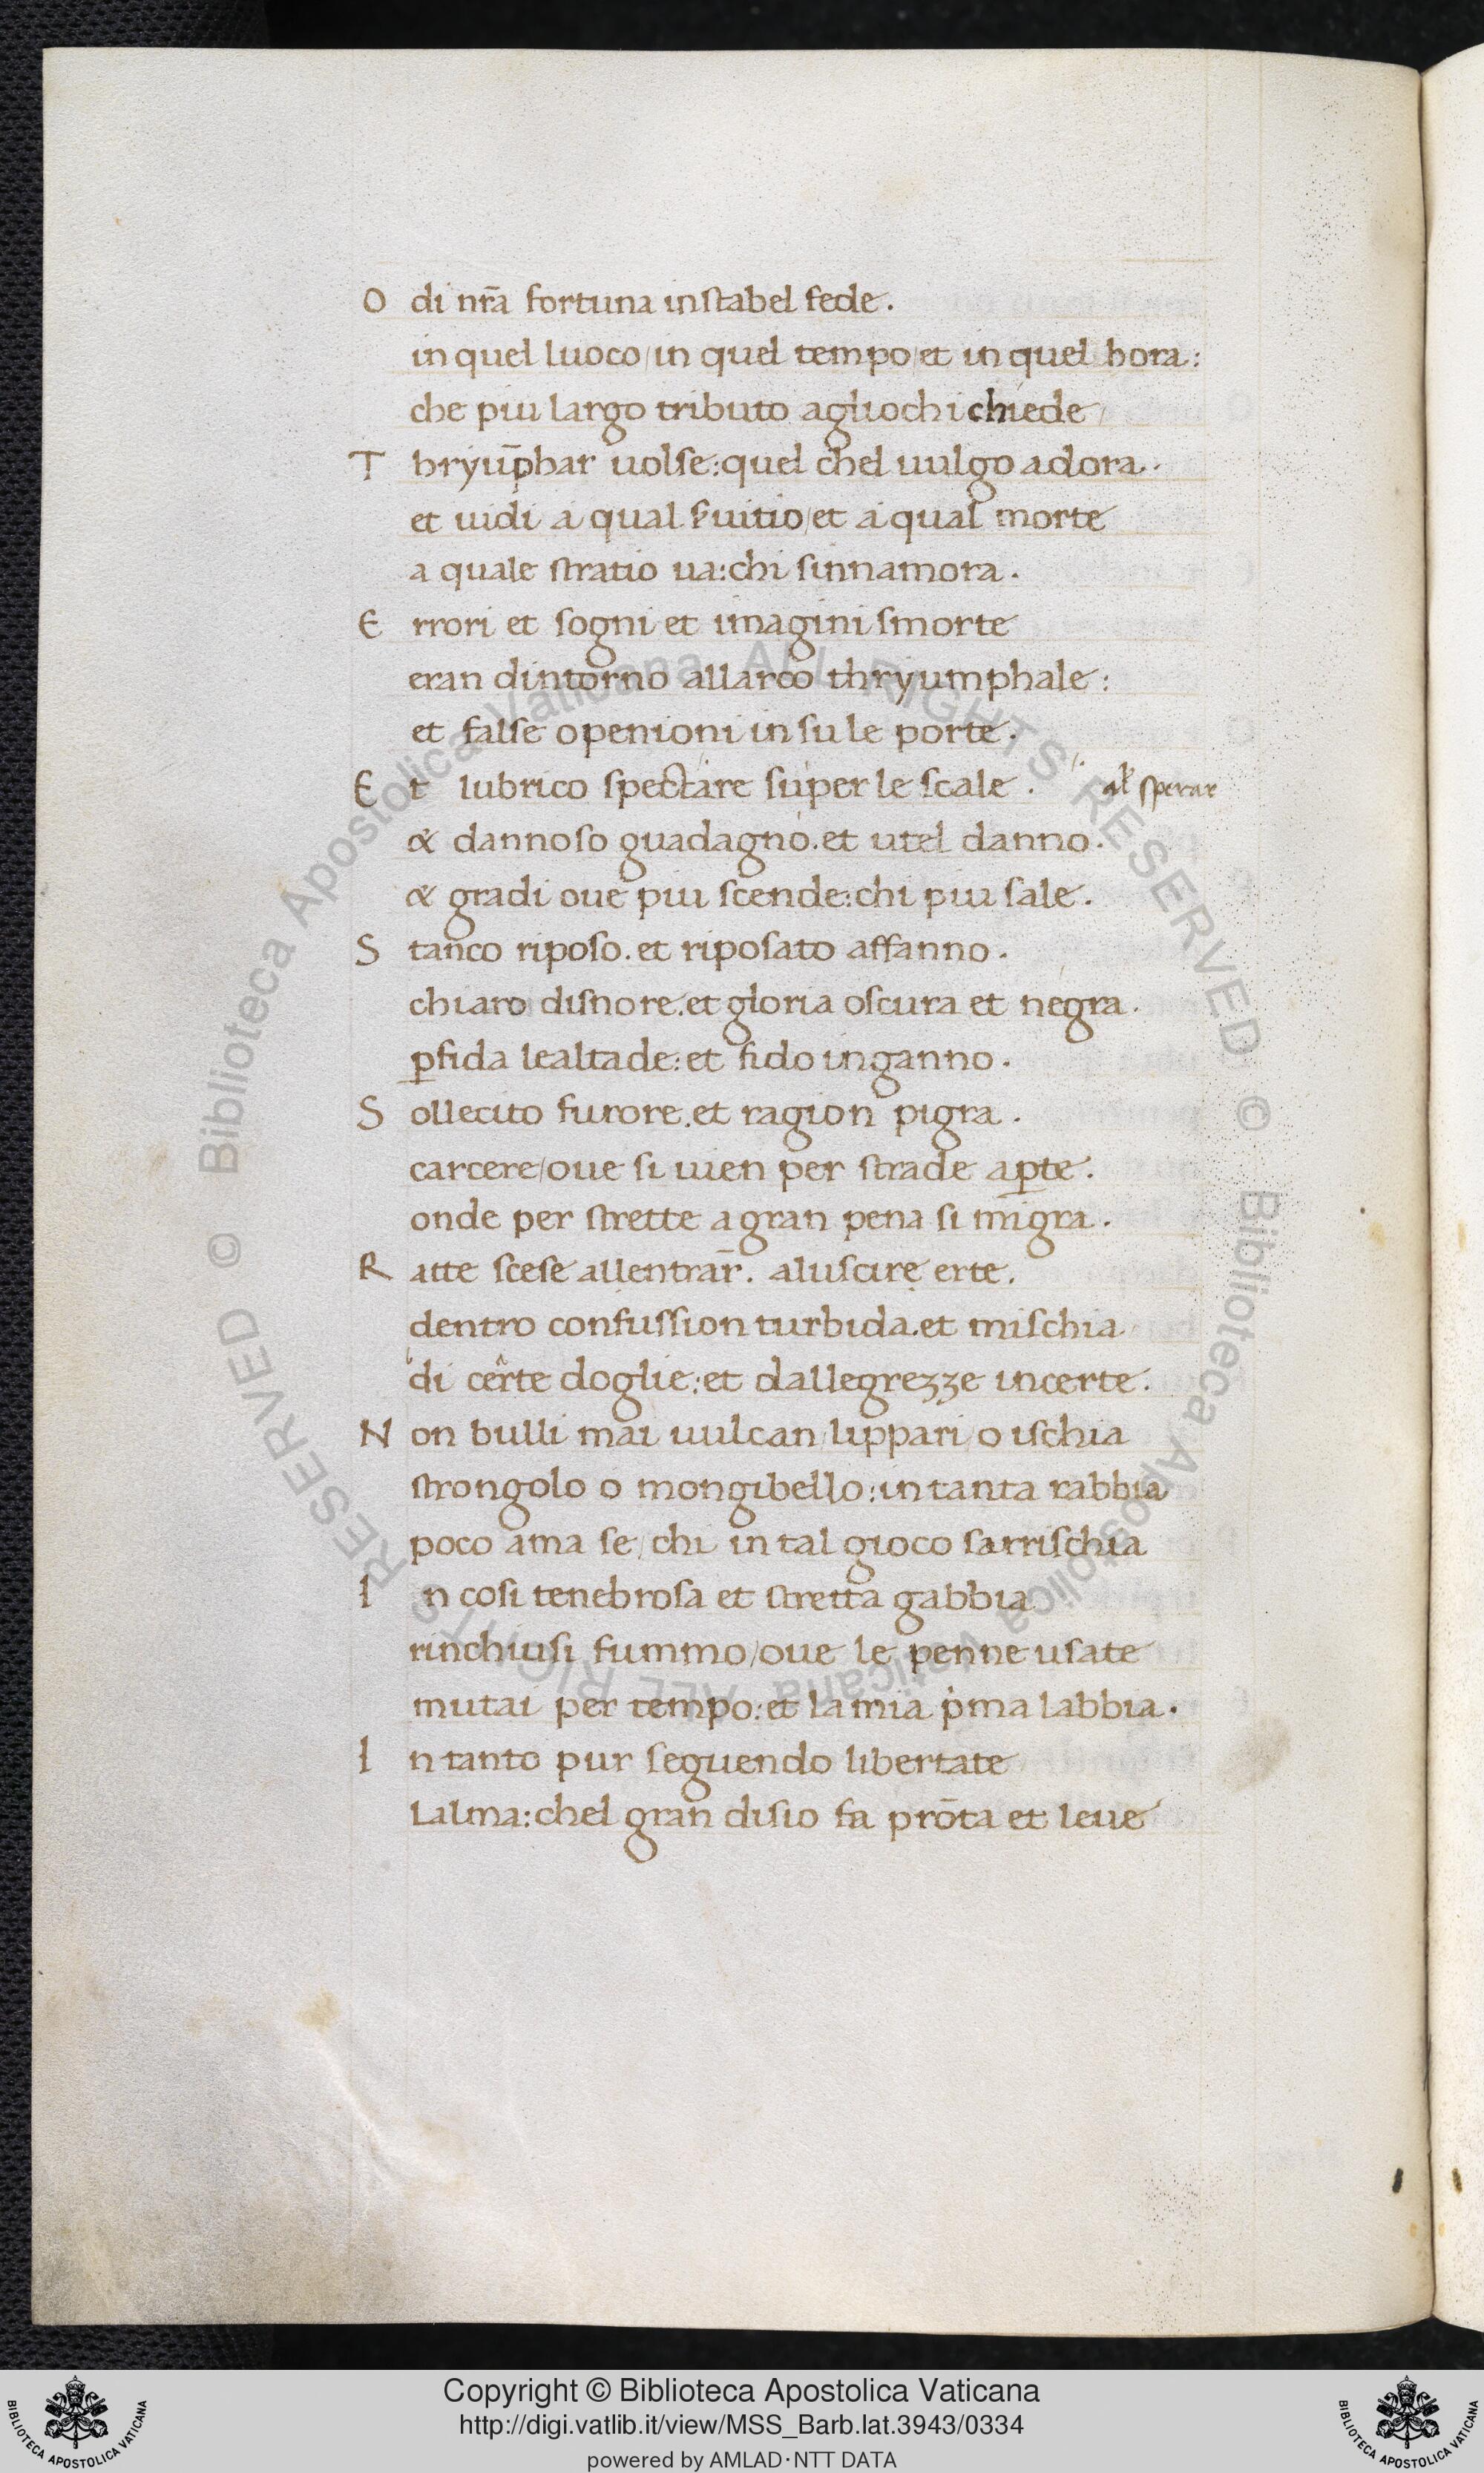 O di nr̄a fortuna instabel fede.
in quel luoco/in quel tempo/et in quel hora:
che piu largo tributo agliochi chiede/
T hryūphar uolse:quel chel uulgo adora.
et uidi a qual s̄uitio/et a qual morte
a quale stratio ua:chi sinnamora.
E rrori et sogni et imagini smorte
eran dintorno allarco thryumphale:
et false openioni in su le porte.
E t lubrico spectare super le scale. al' sperare
& dannoso guadagno.et utel danno.
& gradi oue piu scende:chi piu sale.
S tanco riposo.et riposato affanno.
chiaro disnore.et gloria oscura et negra.
ꝑfida lealtade:et fido inganno.
S ollecito furore.et ragion pigra.
carcere/oue si uien per strade aꝑte.
onde per strette a gran pena si migra.
R atte scese allentrar̄. aluscire erte.
dentro confussion turbida.et mischia
di certe doglie:et dallegrezze incerte.
N on bulli mai uulcan/lippari/o ischia
strongolo o mongibello:in tanta rabbia
poco ama se/chi in tal gioco sarrischia
I n cosi tenebrosa et stretta gabbia
rinchiusi fummo/oue le penne usate
mutai per tempo:et la mia ṗma labbia.
I n tanto pur seguendo libertate
Lalma:chel gran disio fa prōta et leue
© Biblioteca Apostolica Vaticana ALL RIGHTS RESERVED © Biblioteca Apostolica Vaticana ALL RIGHTS RESERVED
BIBLIOTECA APOSTOLICA VATICANA
Copyright © Biblioteca Apostolica Vaticana
http://digi.vatlib.it/view/MSS_Barb.lat.3943/0334
powered by AMLAD·NTT DATA
BIBLIOTECA APOSTOLICA VATICANA